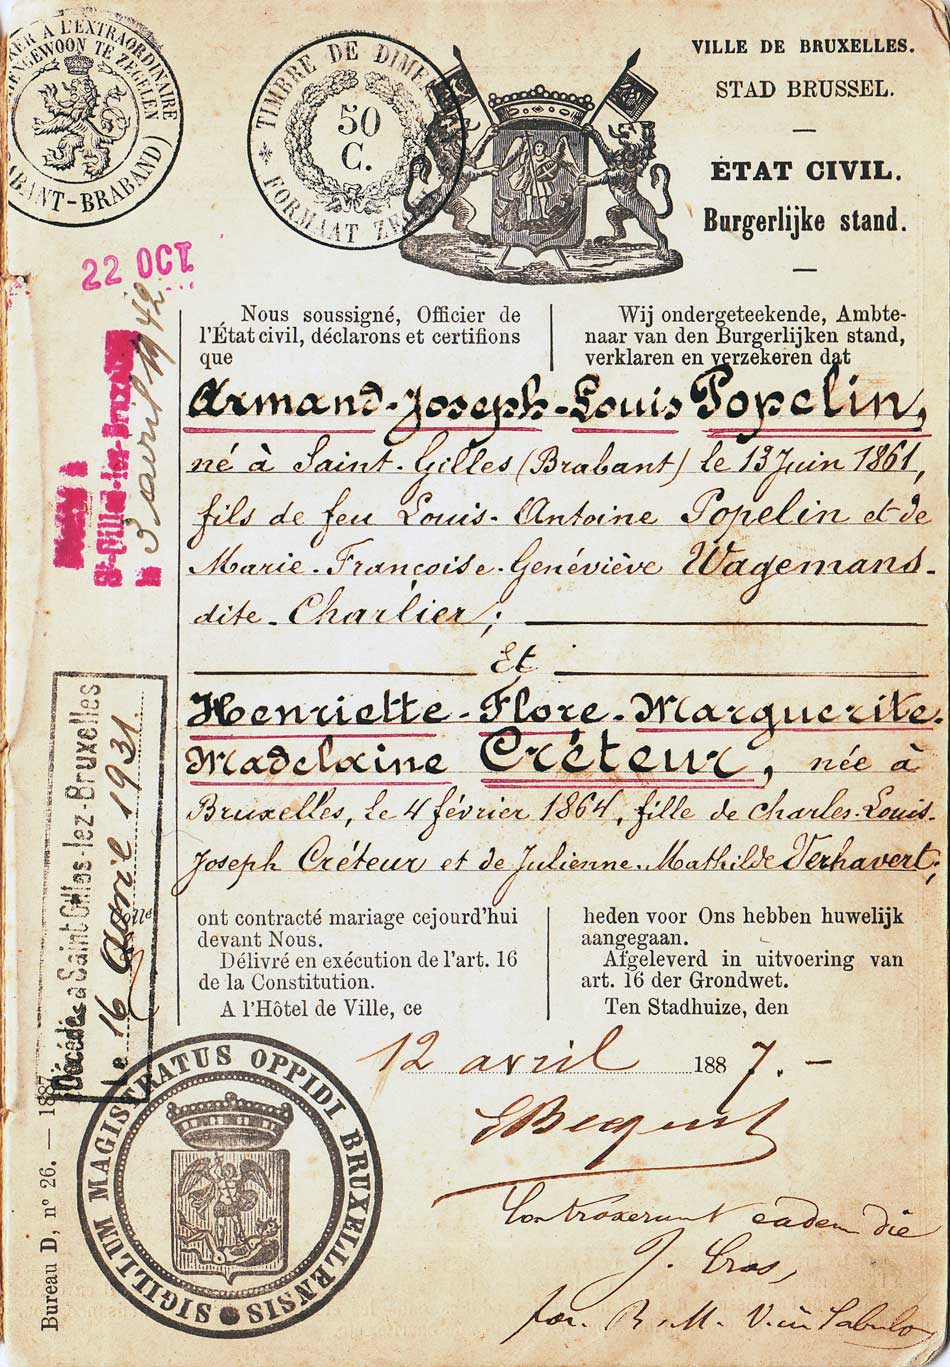 A L'EXTRAORDINAIRE
TE ZEGELEN
ANT-BRABAND)
TIMBRE DE DIME
50
C.
FORMAAT ZE
VILLE DE BRUXELLES.
STAD BRUSSEL.
ÉTAT CIVIL.
Burgerlijke stand.
22 OCT.
St-Gilles-lez-Bruxelles
3 avril 1942
Nous soussigné, Officier de
l'État civil, déclarons et certifions
que
Wij ondergeteekende, Ambte-
naar van den Burgerlijken stand,
verklaren en verzekeren dat
Armand-Joseph-Louis Popelin,
né à Saint-Gilles (Brabant) le 13 Juin 1861,
fils de feu Louis-Antoine Popelin et de
Marie-Françoise-Geneviève Wagemans-
dite-Charlier;
Et
Henriette-Flore-Marguerite-
Madelaine Créteur, née à
Bruxelles, le 4 février 1864, fille de Charles-Louis-
Joseph Créteur et de Julienne-Mathilde Verhavert;
ont contracté mariage cejourd'hui
devant Nous.
Délivré en exécution de l'art. 16
de la Constitution.
A l'Hôtel de Ville, ce
heden voor Ons hebben huwelijk
aangegaan.
Afgeleverd in uitvoering van
art. 16 der Grondwet.
Ten Stadhuize, den
12 avril 1887.-
Décédée à Saint Gilles-lez-Bruxelles
Le 16 avril 1931.
SIGILLUM MAGISTRATUS OPPIDI BRUXELLENSIS
Bureau D, n° 26. — 1887
Contraxerunt eadem die